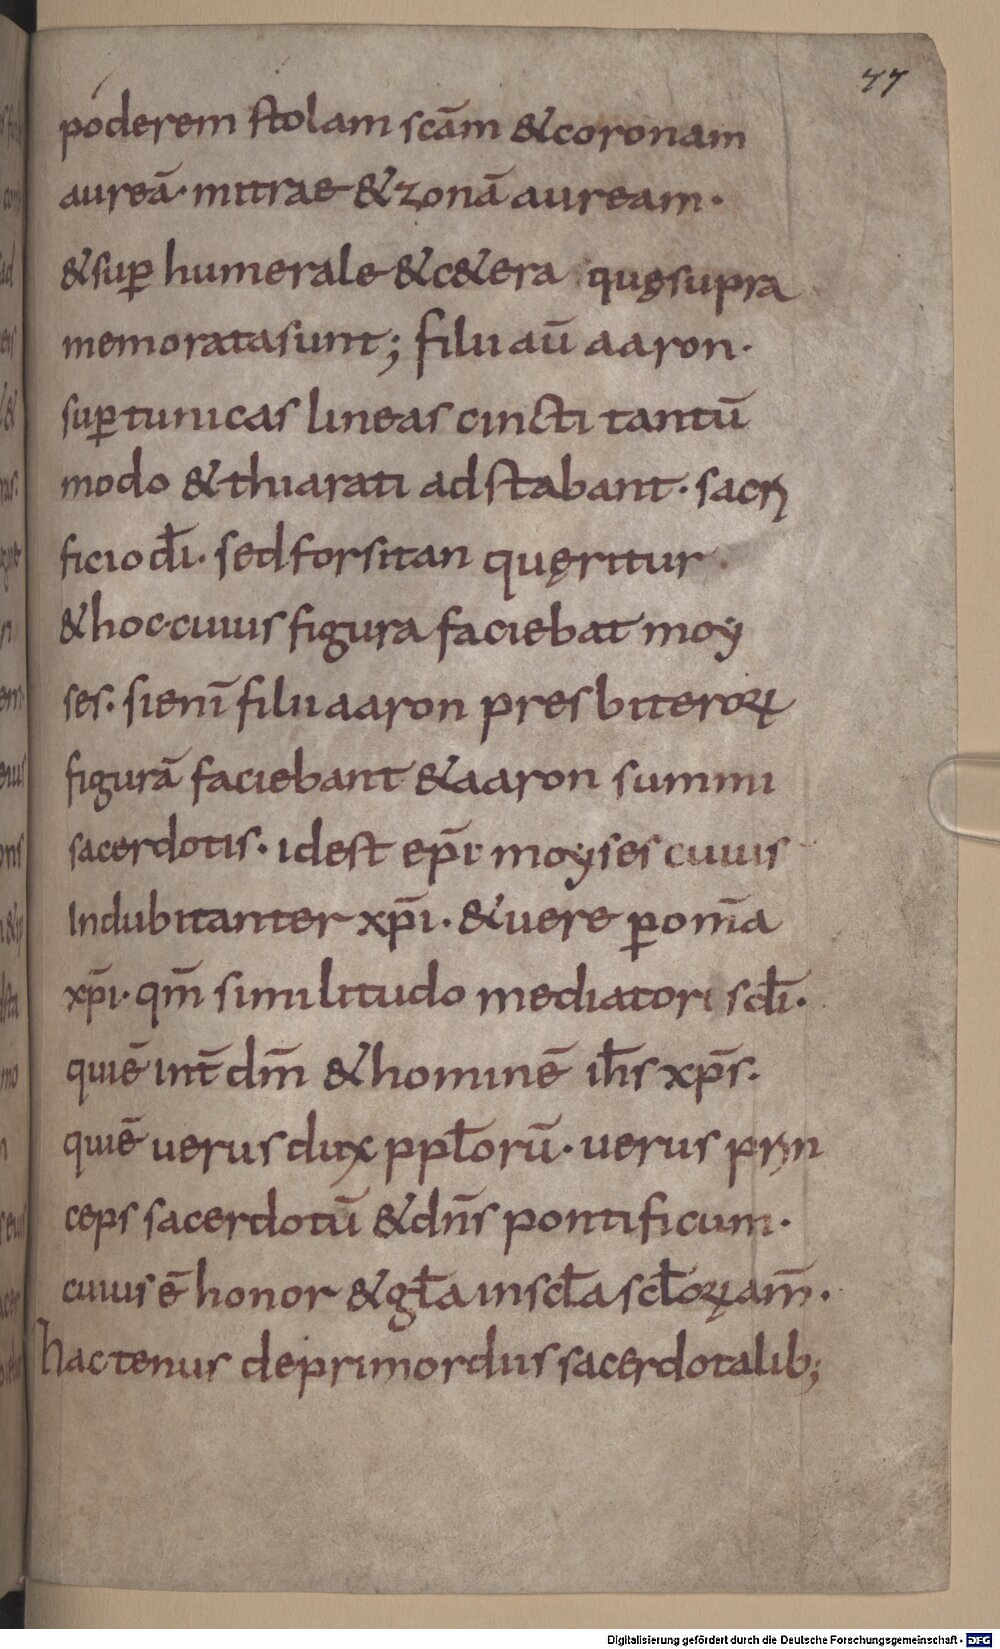 77
poderem stolam scām & coronam
aureā· mitrae & zonā auream·
& suꝑ humerale & c&era quęsupra
memorata sunt; filii aū aaron·
suꝑ tunicas lineas cincti tantū
modo & thiarati ad stabant· sacri
ficio dī· sed forsitan quęritur
& hoc cuius figura faciebat moy
ses· si enī filii aaron presbiteroꝝ
figurā faciebant & aaron summi
sacerdotis· id est ep̄i moyses cuius
Indubitanter xp̄i· & uere ꝑ om̄a
xp̄i· qm̄ similitudo mediatoris dī·
qui ē int̄ dm̄ & hominē ih̄s xp̄s·
qui ē uerus dux ppƚorū· uerus prin
ceps sacerdotū & dn̄s pontificum·
cuius ē honor & gƚa in scƚa scƚoꝝ am̄·
hactenus de primordiis sacerdotalib;
Digitalisierung gefördert durch die Deutsche Forschungsgemeinschaft - DFG